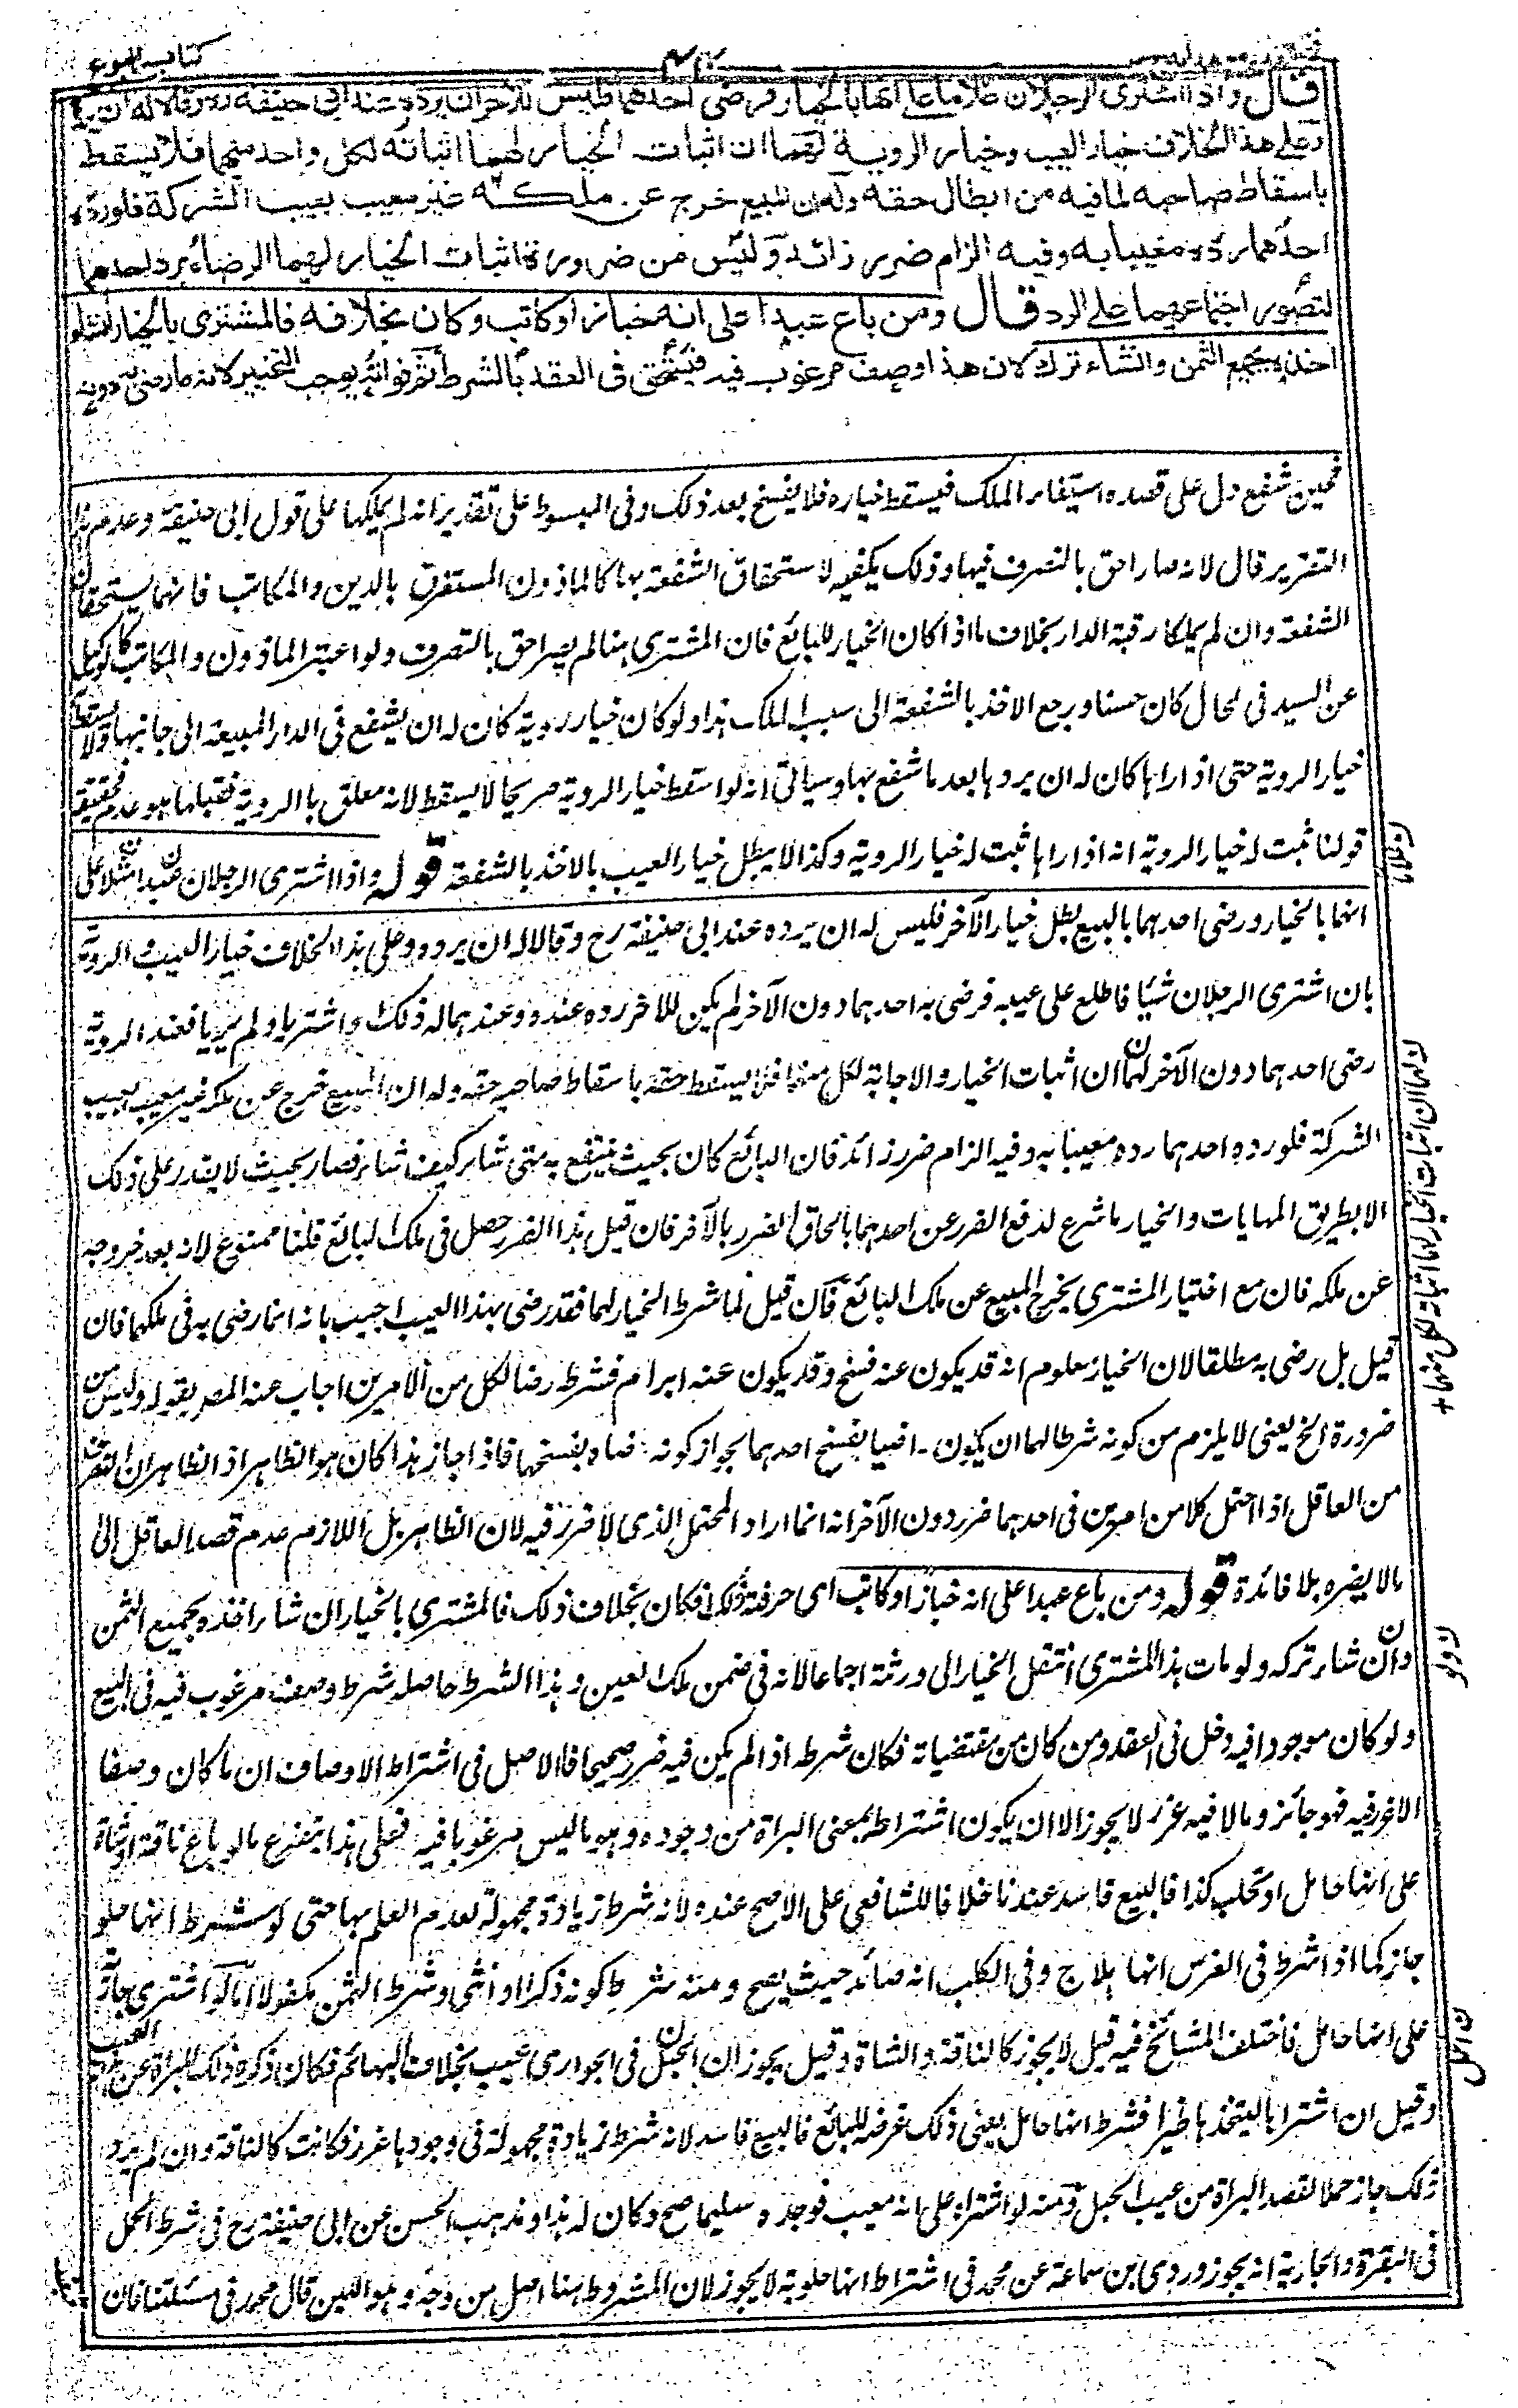 كتاب البيوع
قال واذا اشترى الرجلان غلاما على انهما بالخيار فرضى احدهما فليس للآخر ان يرده عند ابى حنيفة رح وقالا له ان يرده
وعلى هذا الخلاف خيار العيب وخيار الروية لهما ان اثبات الخيار لهما اثباته لكل واحد منهما فلا يسقط
باسقاط صاحبه لما فيه من ابطال حقه وله ان المبيع خرج عن ملكه غير معيب بعيب الشركة فلو رده
احدهما رده معيبا به وفيه الزام ضرر زائد وليس من ضرورة اثبات الخيار لهما الرضاء برد احدهما
لتصور اجتماعهما على الرد قال ومن باع عبدا على انه خباز او كاتب وكان بخلافه فالمشترى بالخيار ان شاء
اخذه بجميع الثمن وان شاء ترك لان هذا وصف مرغوب فيه فيستحق فى العقد بالشرط ثم فواته يوجب التخيير لانه ما رضى به دونه
فحين شفع دل على قصده استيفاء الملك فيسقط خياره فلا يفسخ بعد ذلك وفى المبسوط على تقدير انه لم يملكها على قول ابى حنيفة وعدم هذا
التقرير قال لانه صار احق بالتصرف فيها وذلك يكفيه لاستحقاق الشفعة بها كالماذون المستغرق بالدين والمكاتب فانهما يستحقان
الشفعة وان لم يملكا رقبة الدار بخلاف ما اذا كان الخيار للبائع فان المشترى هنا لم يصر احق بالتصرف ولو اعتبر الماذون والمكاتب كالوكيل
عن السيد فى الحال كان حسنا ويرجع الاخذ بالشفعة الى سبب الملك هذا ولو كان خيار روية كان له ان يشفع فى الدار المبيعة الى جانبها ولا يسقط
خيار الروية حتى اذا راها كان له ان يردها بعد ما شفع بها وسياتى انه لو اسقط خيار الروية صريحا لا يسقط لانه معلق بالروية فقبلها هو عدم فحقيقة
قولنا ثبت له خيار الروية انه اذا راها ثبت له خيار الروية وكذا لا يبطل خيار العيب بالاخذ بالشفعة قوله واذا اشترى الرجلان عبدا مثلا على
انهما بالخيار ورضى احدهما بالبيع بطل خيار الآخر فليس له ان يرده عند ابى حنيفة رح وقالا له ان يرده وعلى هذا الخلاف خيار العيب والروية
بان اشترى الرجلان شيئا فاطلع على عيبه فرضى به احدهما دون الآخر لم يكن للآخر رده عنده وعندهما له ذلك واشترياه ولم يرياه فعند الروية
رضى احدهما دون الآخر لهما ان اثبات الخيار والاجابة لكل منهما فلا يسقط حقه باسقاط صاحبه حقه وله ان المبيع خرج عن ملكه غير معيب بعيب
الشركة فلو رده احدهما رده معيبا به وفيه الزام ضرر زائد فان البائع كان بحيث ينتفع به متى شاء كيف شاء فصار بحيث لا يقدر على ذلك
الا بطريق المهايات والخيار ما شرع لدفع الضرر عن احدهما بالحاق الضرر بالآخر فان قيل هذا الضرر حصل فى ملك البائع قلنا ممنوع لانه بعد خروجه
عن ملكه فان مع اختيار المشترى يخرج المبيع عن ملك البائع فان قيل لما شرط الخيار لهما فقد رضى بهذا العيب اجيب بانه انما رضى به فى ملكهما فان
قيل بل رضى به مطلقا لان الخيار معلوم انه قد يكون عنه فسخ وقد يكون عنه ابرام فشرط رضا لكل من الامرين اجاب عنه المص بقوله وليس من
ضرورة الخ يعنى لا يلزم من كونه شرطا لهما ان يكون راضيا بفسخ احدهما لجواز كونه رضاه بفسخهما فاذا جاز هذا كان هو الظاهر اذ الظاهر ان التصرف
من العاقل اذا احتمل كلا من امرين فى احدهما ضرر دون الآخر انه انما اراد المحتمل الذى لا ضرر فيه لان الظاهر بل اللازم عدم قصد العاقل الى
ما لا يضره بلا فائدة قوله ومن باع عبدا على انه خباز او كاتب اى حرفته ذلك فكان بخلاف ذلك فالمشترى بالخيار ان شاء اخذه بجميع الثمن
وان شاء تركه ولو مات هذا المشترى انتقل الخيار الى ورثته اجماعا لانه فى ضمن ملك العين وهذا الشرط حاصله شرط وصف مرغوب فيه فى البيع
ولو كان موجودا فيه دخل فى العقد ومن كان من مقتضياته فكان شرطه اذا لم يكن فيه ضرر صحيحا فالاصل فى اشتراط الاوصاف ان ما كان وصفا
لا غرر فيه فهو جائز وما لا فيه غرر لا يجوز الا ان يكون اشتراطه بمعنى البراة من وجوده وهو ما ليس مرغوبا فيه فعلى هذا يتفرع ما لو باع ناقة او شاة
على انها حامل او تحلب كذا فالبيع فاسد عندنا خلافا للشافعى على الاصح عنده لانه شرط زيادة مجهولة لعدم العلم بها حتى لو شرط انها حلو
جاز كما اذا شرط فى الفرس انها هملاج وفى الكلب انه صائد حيث يصح ومنه شرط كونه ذكرا او انثى وشرط الثمن مكفولا اما لو اشترى جارية
على انها حامل فاختلف المشائخ فيه قيل لا يجوز كالناقة والشاة وقيل يجوز لان الحبل فى الجوارى عيب بخلاف البهائم فكان ذكره ذلك للبراة عن هذا العيب
وقيل ان اشتراها ليتخذها ظئرا فشرط انها حامل يعنى ذلك غرضه للبائع فالبيع فاسد لانه شرط زيادة مجهولة فى وجودها غرر فكانت كالناقة وان لم يرد
ذلك جاز حملا لقصد البراة من عيب الحبل ومنه لو اشتراه على انه معيب فوجده سليما صح وكان له هذا ومذهب الحسن عن ابى حنيفة رح فى شرط الحمل
فى البقرة والجارية انه يجوز وروى ابن سماعة عن محمد فى اشتراط انها حلوبة لا يجوز لان المشروط هنا اصل من وجه وهو اللبن قال محمد فى مسئلتنا فان